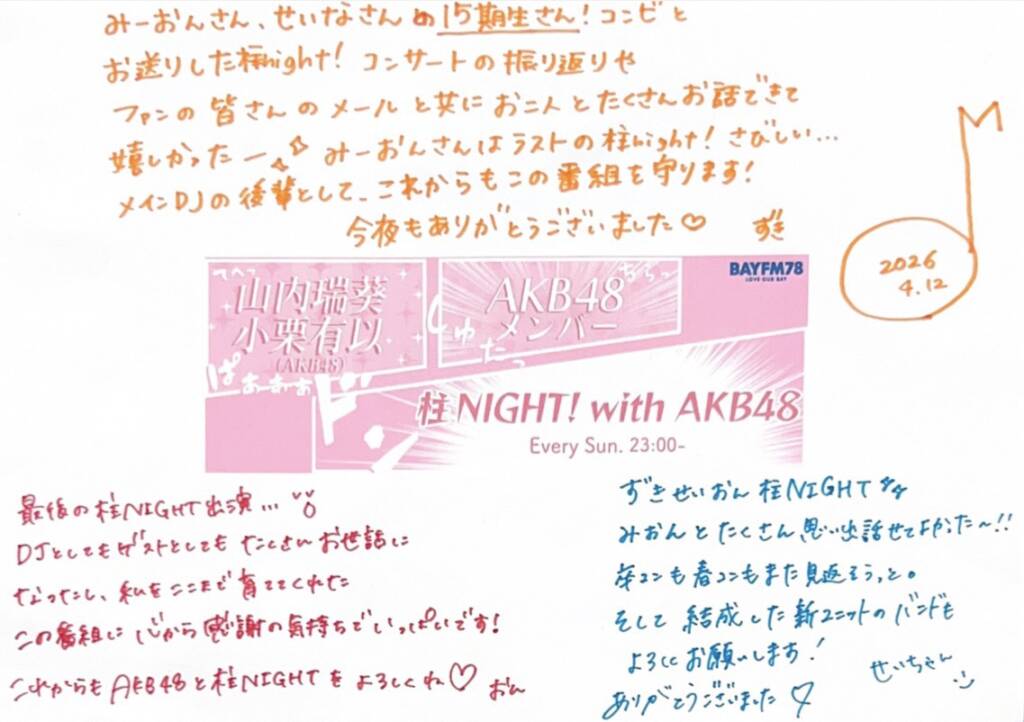 みーおんさん、せいなさんの15期生さん!コンビと
お送りした柱night! コンサートの振り返りや
ファンの皆さんのメールと共にお二人とたくさんお話できて
嬉しかったー みーおんさんはラストの柱night! さびしい...
メインDJの後輩として、これからもこの番組を守ります!
今夜もありがとうございました♡ ずき
2026
4.12
てへっ
山内瑞葵
小栗有以
(AKB48)
AKB48
メンバー
BAYFM78
LOVE OUR BAY
柱NIGHT! with AKB48
Every Sun. 23:00-
最後の柱NIGHT出演...
DJとしてもゲストとしてもたくさんお世話に
なったし、私をここまで育ててくれた
この番組に心から感謝の気持ちでいっぱいです!
これからもAKB48と柱NIGHTをよろしくね♡ おん
ずきせいおん柱NIGHT
みおんとたくさん思い出話せてよかった〜!!
卒コンも春コンもまた見返そうっと。
そして結成した新ユニットのバンドも
よろしくお願いします!
ありがとうございました♡
せいちゃん